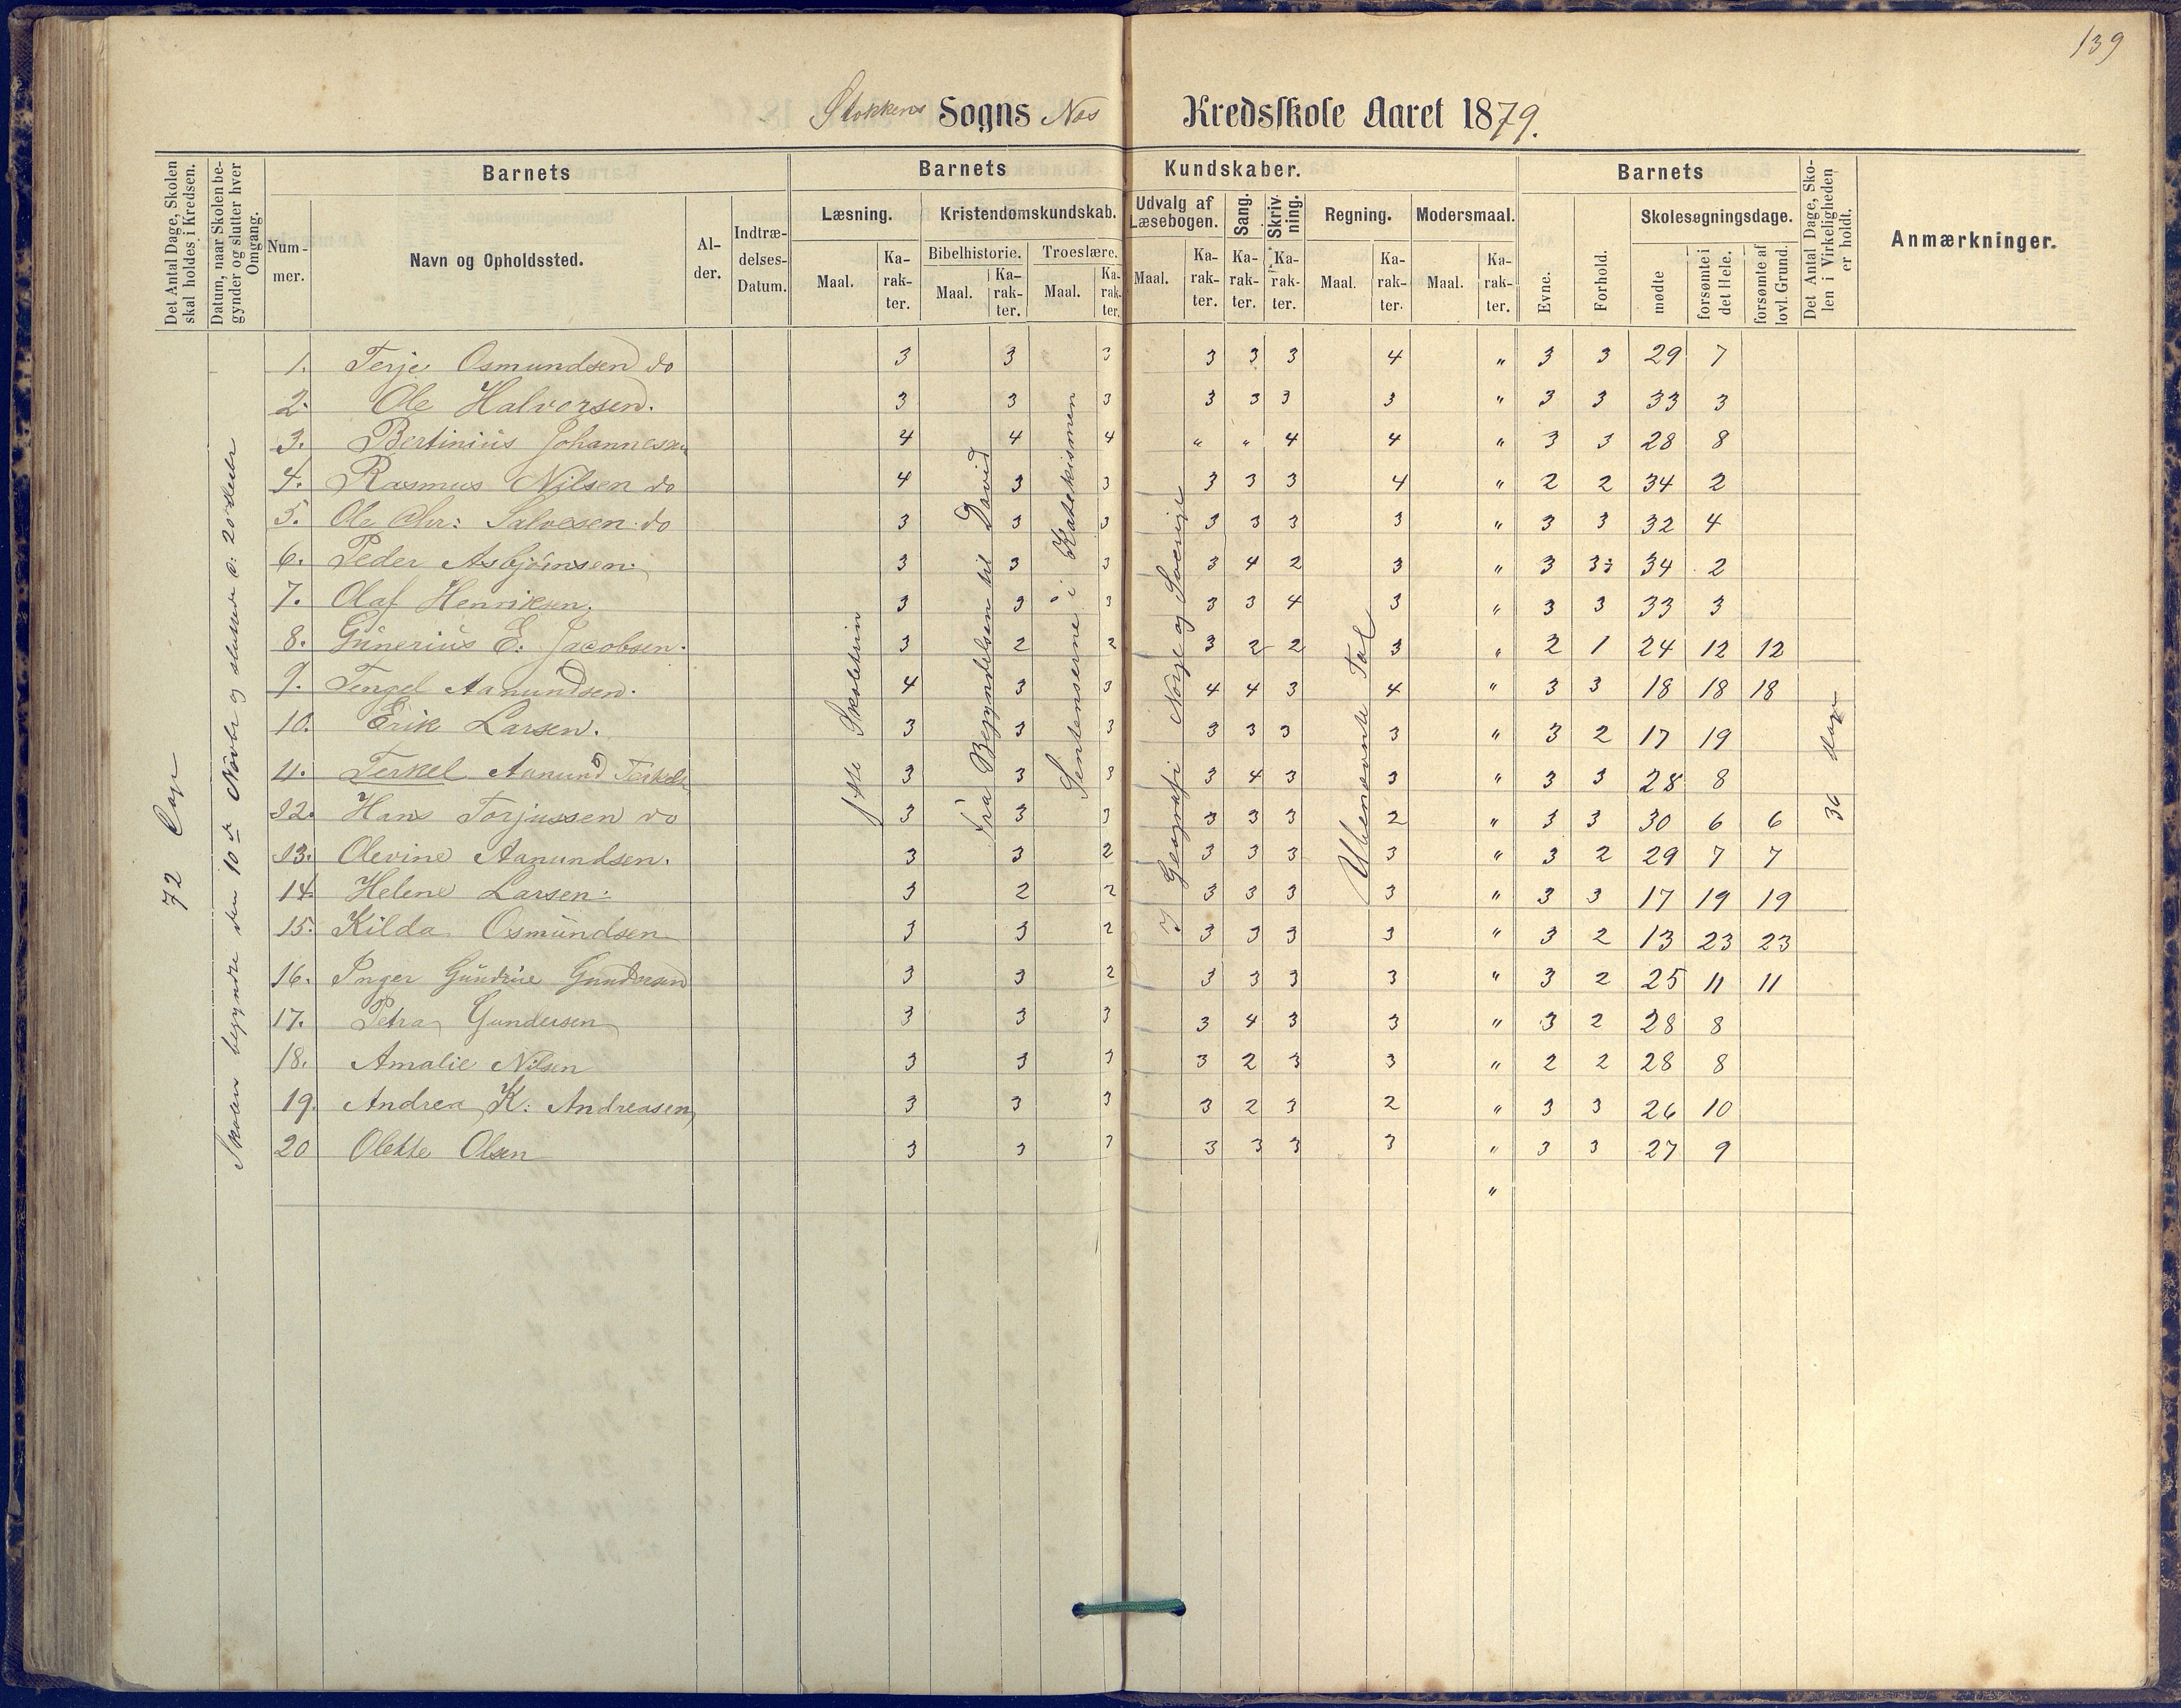 139
Stokkens Sogns Nes Kredsskole Aaret 1879.
Det Antal Dage, Skolen skal holdes i Kredsen.
Datum, naar Skolen begynder og slutter hver Omgang.
Barnets
Nummer.
Navn og Opholdssted.
Alder.
Indtrædelses-Datum.
Barnets Kundskaber.
Læsning.
Maal.
Karakter.
Kristendomskundskab.
Bibelhistorie.
Maal.
Karakter.
Troeslære.
Maal.
Karakter.
Udvalg af Læsebogen.
Maal.
Karakter.
Sang.
Karakter.
Skrivning.
Karakter.
Regning.
Maal.
Karakter.
Modersmaal.
Maal.
Karakter.
Barnets
Evne.
Forhold.
Skolesøgningsdage.
mødte
forsømte i det Hele.
forsømte af lovl. Grund.
Det Antal Dage, Skolen i Virkeligheden er holdt.
Anmærkninger.
72
Skolen begyndte den 10de Novbr og sluttede d: 20 Decbr
1ste Skoletrin
Fra Begyndelsen til David
Sentenserne i Katekismen
I Geografi Norge og Sverrige
Ubenævnte Tal
36 Dage
1. Terje Osmundsen do 3 3 3 3 3 3 4 " 3 3 29 7
2. Ole Halvorsen. 3 3 3 3 3 3 3 " 3 3 33 3
3. Bertinius Johannesen 4 4 4 " " 4 4 " 3 3 28 8
4. Rasmus Nilsen do 4 3 3 3 3 3 4 " 2 2 34 2
5. Ole Chr: Salvesen do 3 3 3 3 3 3 3 " 3 3 32 4
6. Peder Asbjörnsen. 3 3 3 3 4 2 3 " 3 3 34 2
7. Olaf Henriksen. 3 3 3 3 3 4 3 " 3 3 33 3
8. Gunerius E. Jacobsen. 3 2 2 3 2 2 3 " 2 1 24 12 12
9. Tengel Aanundsen. 4 3 3 4 4 3 4 " 3 3 18 18 18
10. Erik Larsen. 3 3 3 3 3 3 3 " 3 2 17 19
11. Terkel Aanund Terkels 3 3 3 3 4 3 3 " 3 3 28 8
12. Hans Torjussen do 3 3 3 3 3 3 2 " 3 3 30 6 6
13. Olevine Aanundsen. 3 3 2 3 3 3 3 " 3 2 29 7 7
14. Helene Larsen. 3 2 2 3 3 3 3 " 3 3 17 19 19
15. Kilda Osmundsen 3 3 2 3 3 3 3 " 3 2 13 23 23
16. Inger Gundersen 3 3 2 3 3 3 3 " 3 2 25 11 11
17. Petra Gundersen 3 3 3 3 4 3 3 " 3 2 28 8
18. Amalie Nilsen 3 3 3 3 2 3 3 " 2 2 28 8
19. Andrea K: Andreasen 3 3 3 3 2 3 2 " 3 3 26 10
20 Olette Olsen 3 3 3 3 3 3 3 " 3 3 27 9
"